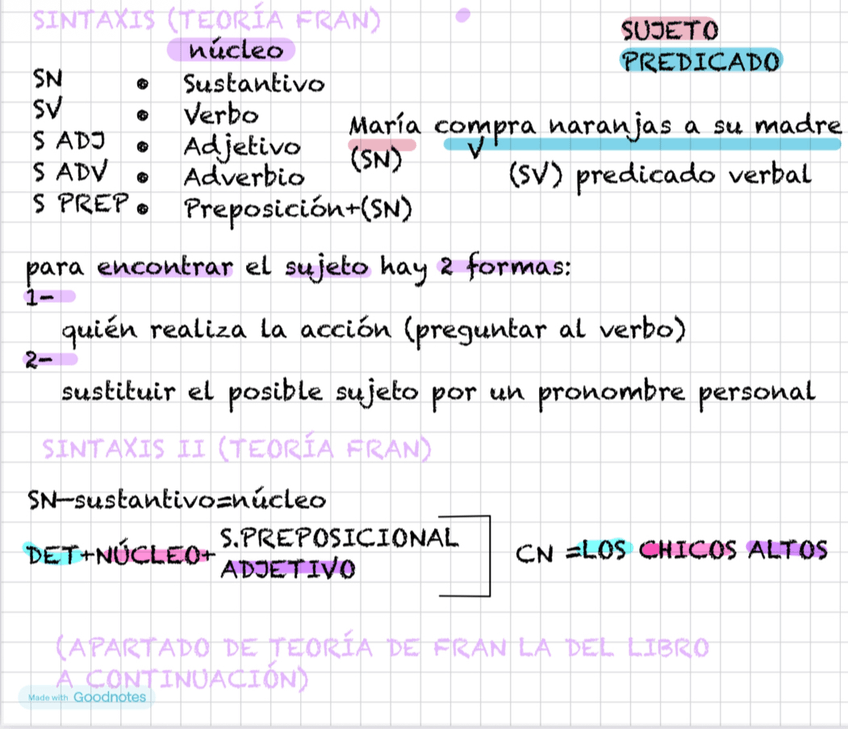 SINTAXIS (TEORÍA FRAN)
núcleo
SN • Sustantivo
SV • Verbo
S ADJ • Adjetivo
S ADV • Adverbio
S PREP • Preposición+(SN)
SUJETO
PREDICADO
María compra naranjas a su madre
(SN) V
(SV) predicado verbal
para encontrar el sujeto hay 2 formas:
1-
quién realiza la acción (preguntar al verbo)
2-
sustituir el posible sujeto por un pronombre personal
SINTAXIS II (TEORÍA FRAN)
SN-sustantivo=núcleo
S.PREPOSICIONAL
DET+NÚCLEO+ CN =LOS CHICOS ALTOS
ADJETIVO
(APARTADO DE TEORÍA DE FRAN LA DEL LIBRO
A CONTINUACIÓN)
Made with Goodnotes